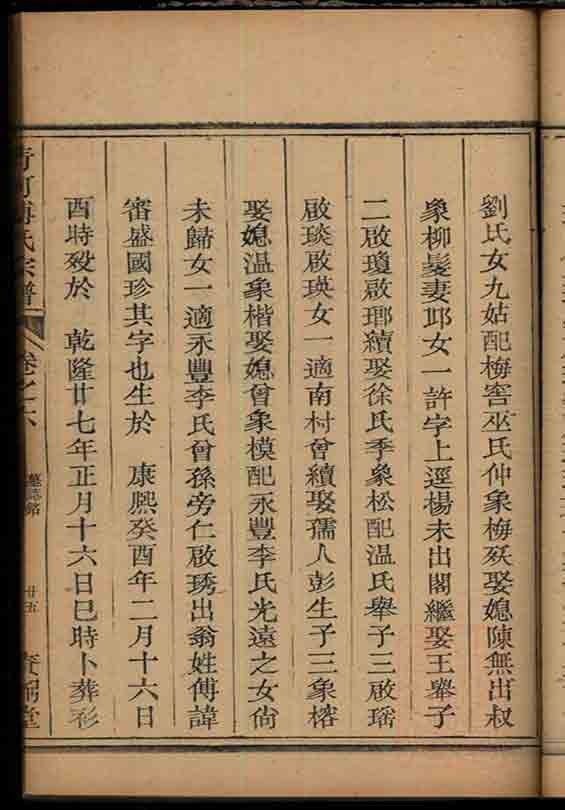 劉氏女九姑配梅窖巫氏仲象梅殀娶媳陳無出叔
象柳髮妻邛女一許字上逕楊未出閣繼娶王舉子
二啟瓊啟瑘續娶徐氏季象松配温氏舉子三啟瑶
啟琰啟瑛女一適南村曾續娶孺人彭生子三象榕
娶媳温象楷娶媳曾象模配永豐李氏光遠之女尙
未歸女一適永豐李氏曾孫旁仁啟琇出翁姓傅諱
審盛國珍其字也生於 康熙癸酉年二月十六日
酉時殁於 乾隆廿七年正月十六日巳時卜葬衫
清河傅氏宗譜 卷之六 墓誌銘 廿五